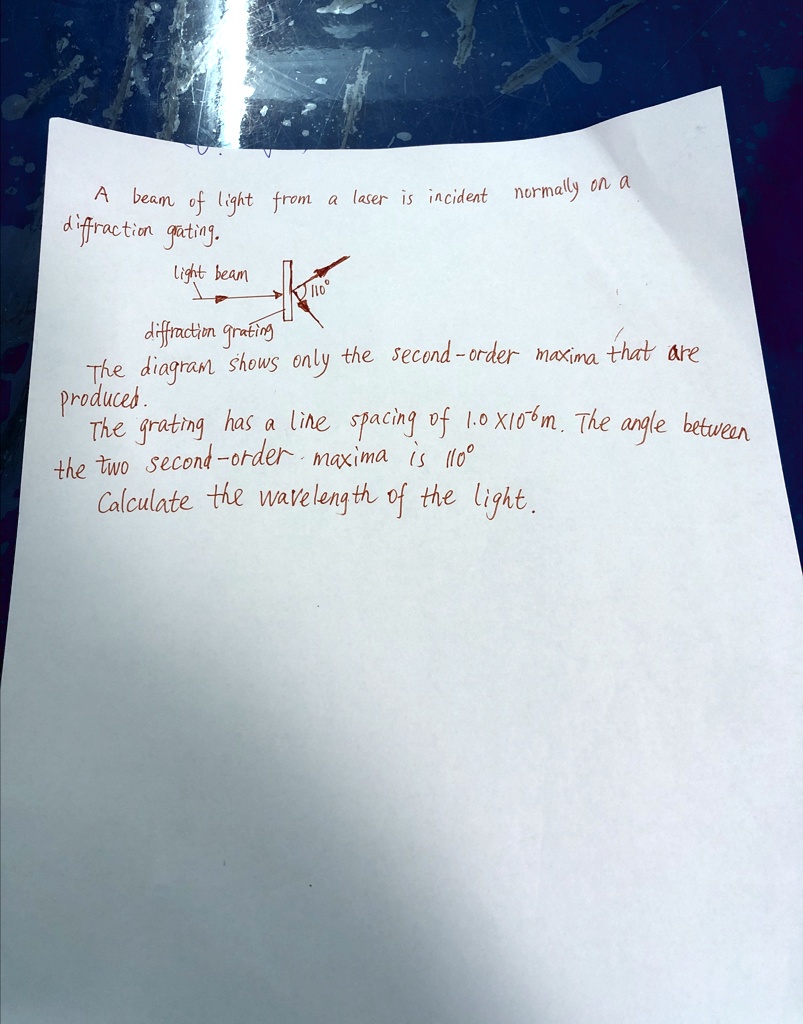 A beam of light from a laser is incident normally on a
diffraction grating.
light beam
110°
diffraction grating
The diagram shows only the second-order maxima that are
produced.
The grating has a line spacing of 1.0 X10⁻⁶m. The angle between
the two second-order maxima is 110°
Calculate the wavelength of the light.